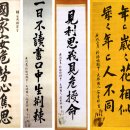 年年歲歲花相似
歲歲年年人不同
見利思義見危授命
一日不讀書口中生荊棘
國家安危勞心焦思